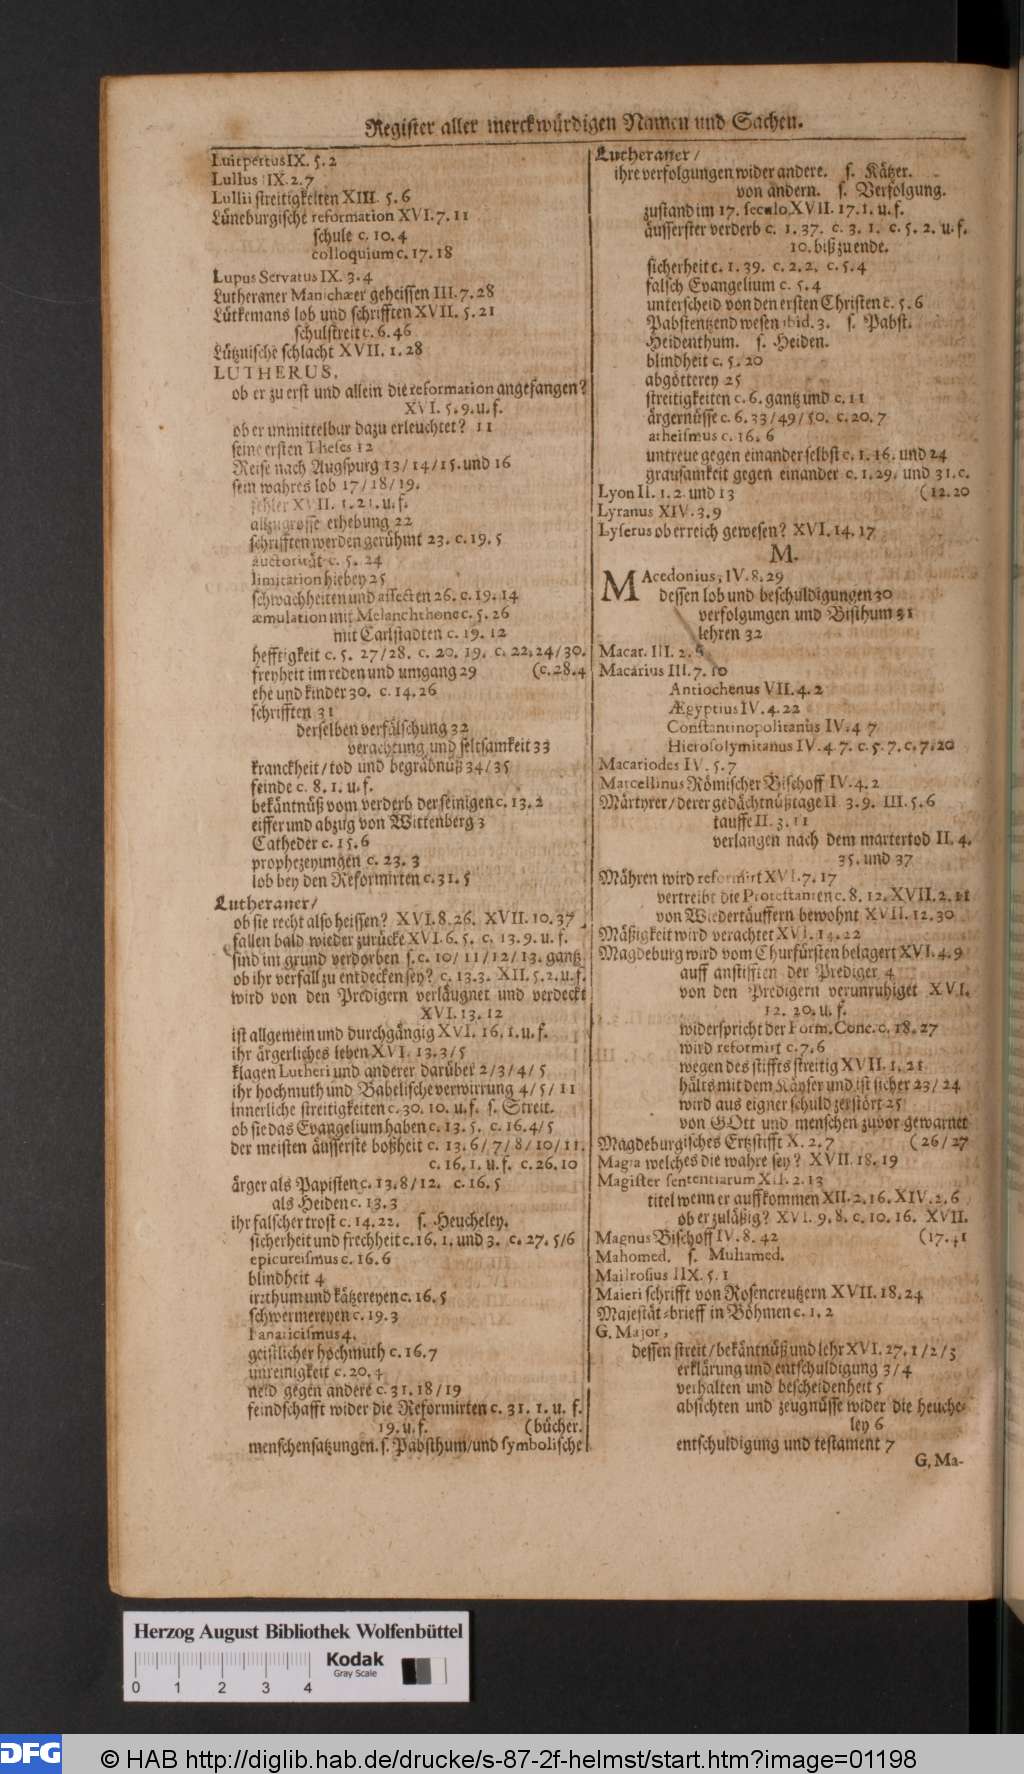 Register aller merckwürdigen Namen und Sachen.
Luitpertus IX. 5. 2
Lullus IX. 2. 7
Lullii streitigkeiten XIII. 5. 6
Lüneburgische reformation XVI. 7. 11
schule c. 10. 4
colloquium c. 17. 18
Lupus Servatus IX. 3. 4
Lutheraner Manichæer geheissen III. 7. 28
Lütkemans lob und schrifften XVII. 5. 21
schulstreit c. 6. 46
Lütznische schlacht XVII. 1. 28
LUTHERUS.
ob er zu erst und allein die reformation angefangen?
XVI. 5. 9. u. f.
ob er unmittelbar dazu erleuchtet? 11
seine ersten Theses 12
Reise nach Augspurg 13/14/15. und 16
sein wahres lob 17/18/19.
fehler XVII. 1. 21. u. f.
allzugrosse erhebung 22
schrifften werden gerühmt 23. c. 19. 5
auctorität c. 5. 24
limitation hiebey 25
schwachheiten und affecten 26. c. 19. 14
æmulation mit Melanchthone c. 5. 26
mit Carlstadten c. 19. 12
hefftigkeit c. 5. 27/28. c. 20. 19. c. 22. 24/30.
freyheit im reden und umgang 29 (c. 28. 4
ehe und kinder 30. c. 14. 26
schrifften 31
derselben verfälschung 32
verachtung und seltsamkeit 33
kranckheit/tod und begräbnüß 34/35
feinde c. 8. 1. u. f.
bekäntnüß vom verderb der seinigen c. 13. 2
eiffer und abzug von Wittenberg 3
Catheder c. 15. 6
prophezeyungen c. 23. 3
lob bey den Reformirten c. 31. 5
Lutheraner/
ob sie recht also heissen? XVI. 8. 26. XVII. 10. 37
fallen bald wieder zurücke XVI. 6. 5. c. 13. 9. u. f.
sind im grund verdorben f. c. 10/11/12/13. gantz
ob ihr verfall zu entdecken sey? c. 13. 3. XII. 5. 2. u. f.
wird von den Predigern verläugnet und verdeckt
XVI. 13. 12
ist allgemein und durchgängig XVI. 16. 1. u. f.
ihr ärgerliches leben XVI. 13. 3/5
klagen Lutheri und anderer darüber 2/3/4/5
ihr hochmuth und Babelische verwirrung 4/5/11
innerliche streitigkeiten c. 30. 10. u. f. s. Streit.
ob sie das Evangelium haben c. 13. 5. c. 16. 4/5
der meisten äusserste boßheit c. 13. 6/7/8/10/11.
c. 16. 1. u. f. c. 26. 10
ärger als Papisten c. 13. 8/12. c. 16. 5
als Heiden c. 13. 3
ihr falscher trost c. 14. 22. s. Heucheley.
sicherheit und frechheit c. 16. 1. und 3. c. 27. 5/6
epicureismus c. 16. 6
blindheit 4
irrthum und kätzereyen c. 16. 5
schwermereyen c. 19. 3
Fanaticismus 4.
geistlicher hochmuth c. 16. 7
unreinigkeit c. 20. 4
neid gegen andere c. 31. 18/19
feindschafft wider die Reformirten c. 31. 1. u. f.
19. u. f. (bücher.
menschensatzungen. s. Pabsthum/und symbolische
Lutheraner/
ihre verfolgungen wider andere. s. Kätzer.
von andern. s. Verfolgung.
zustand im 17. seculo XVII. 17. 1. u. f.
äusserster verderb c. 1. 37. c. 3. 1. c. 5. 2. u. f.
10. biß zu ende.
sicherheit c. 1. 39. c. 2. 2. c. 5. 4
falsch Evangelium c. 5. 4
unterscheid von den ersten Christen c. 5. 6
Pabstentzend wesen ibid. 3. s. Pabst.
Heidenthum. s. Heiden.
blindheit c. 5. 20
abgötterey 25
streitigkeiten c. 6. gantz und c. 11
ärgernüsse c. 6. 33/49/50. c. 20. 7
atheismus c. 16. 6
untreue gegen einander selbst c. 1. 16. und 24
grausamkeit gegen einander c. 1. 29. und 31. c.
Lyon II. 1. 2. und 13 (12. 20
Lyranus XIV. 3. 9
Lyserus ob er reich gewesen? XVI. 14. 17
M.
MAcedonius, IV. 8. 29
dessen lob und beschuldigungen 30
verfolgungen und Bisthum 31
lehren 32
Macar. III. 2. 5
Macarius III. 7. 10
Antiochenus VII. 4. 2
Ægyptius IV. 4. 22
Constantinopolitanus IV. 4 7
Hierosolymitanus IV. 4. 7. c. 5. 7. c. 7. 20
Macariodes IV. 5. 7
Marcellinus Römischer Bischoff IV. 4. 2
Märtyrer/derer gedächtnüßtage II 3. 9. III. 5. 6
tauffe II. 3. 11
verlangen nach dem martertod II. 4.
35. und 37
Mähren wird reformirt XVI. 7. 17
vertreibt die Protestanten c. 8. 12. XVII. 2. 11
von Wiedertäuffern bewohnt XVII. 12. 30
Mäßigkeit wird verachtet XVI. 14. 22
Magdeburg wird vom Churfürsten belagert XVI. 4. 9
auff anstifften der Prediger 4
von den Predigern verunruhiget XVI.
12. 20. u. f.
widerspricht der Form. Conc. c. 18. 27
wird reformirt c. 7. 6
wegen des stiffts streitig XVII. 1. 21
hälts mit dem Käyser und ist sicher 23/24
wird aus eigner schuld zerstört 25
von GOtt und menschen zuvor gewarnet
Magdeburgisches Ertzstifft X. 2. 7 (26/27
Magia welches die wahre sey? XVII. 18. 19
Magister sententiarum XII. 2. 13
titel wenn er auffkommen XII. 2. 16. XIV. 2. 6
ob er zuläßig? XVI. 9. 8. c. 10. 16. XVII.
Magnus Bischoff IV. 8. 42 (17. 41
Mahomed. s. Muhamed.
Mailrosius IIX. 5. 1
Maieri schrifft von Rosencreutzern XVII. 18. 24
Majestät-brieff in Böhmen c. 1. 2
G. Major,
dessen streit/bekäntnüß und lehr XVI. 27. 1/2/3
erklärung und entschuldigung 3/4
verhalten und bescheidenheit 5
absichten und zeugnüsse wider die heuche-
ley 6
entschuldigung und testament 7
G. Ma-
Herzog August Bibliothek Wolfenbüttel
Kodak
Gray Scale
0 1 2 3 4
DFG
© HAB http://diglib.hab.de/drucke/s-87-2f-helmst/start.htm?image=01198